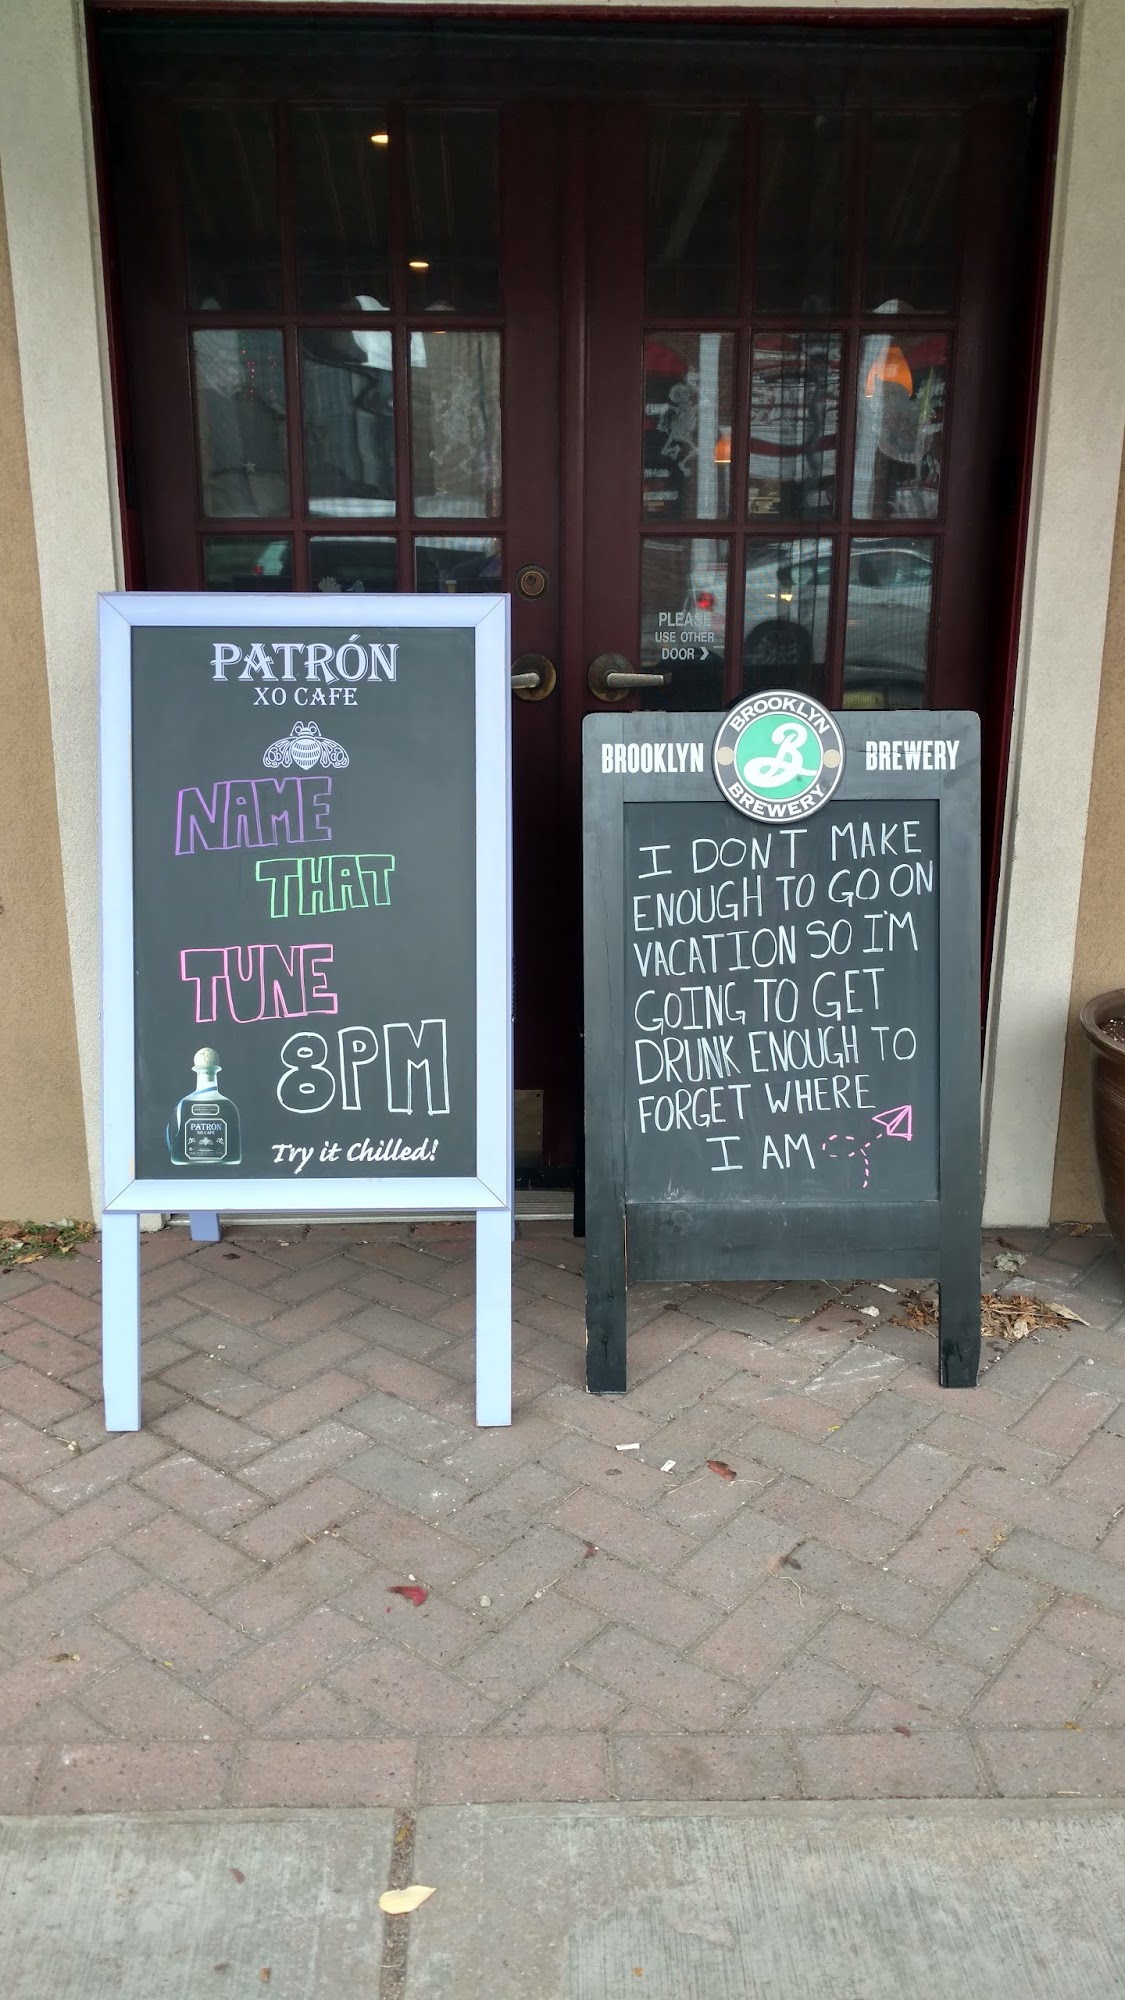 PATRÓN
XO CAFE
NAME
THAT
TUNE
8PM
PATRÓN
XO CAFE
Try it Chilled!
PLEASE
USE OTHER
DOOR ❯
BROOKLYN
BREWERY
BROOKLYN B BREWERY
I DONT MAKE
ENOUGH TO GO ON
VACATION SO I'M
GOING TO GET
DRUNK ENOUGH TO
FORGET WHERE
I AM